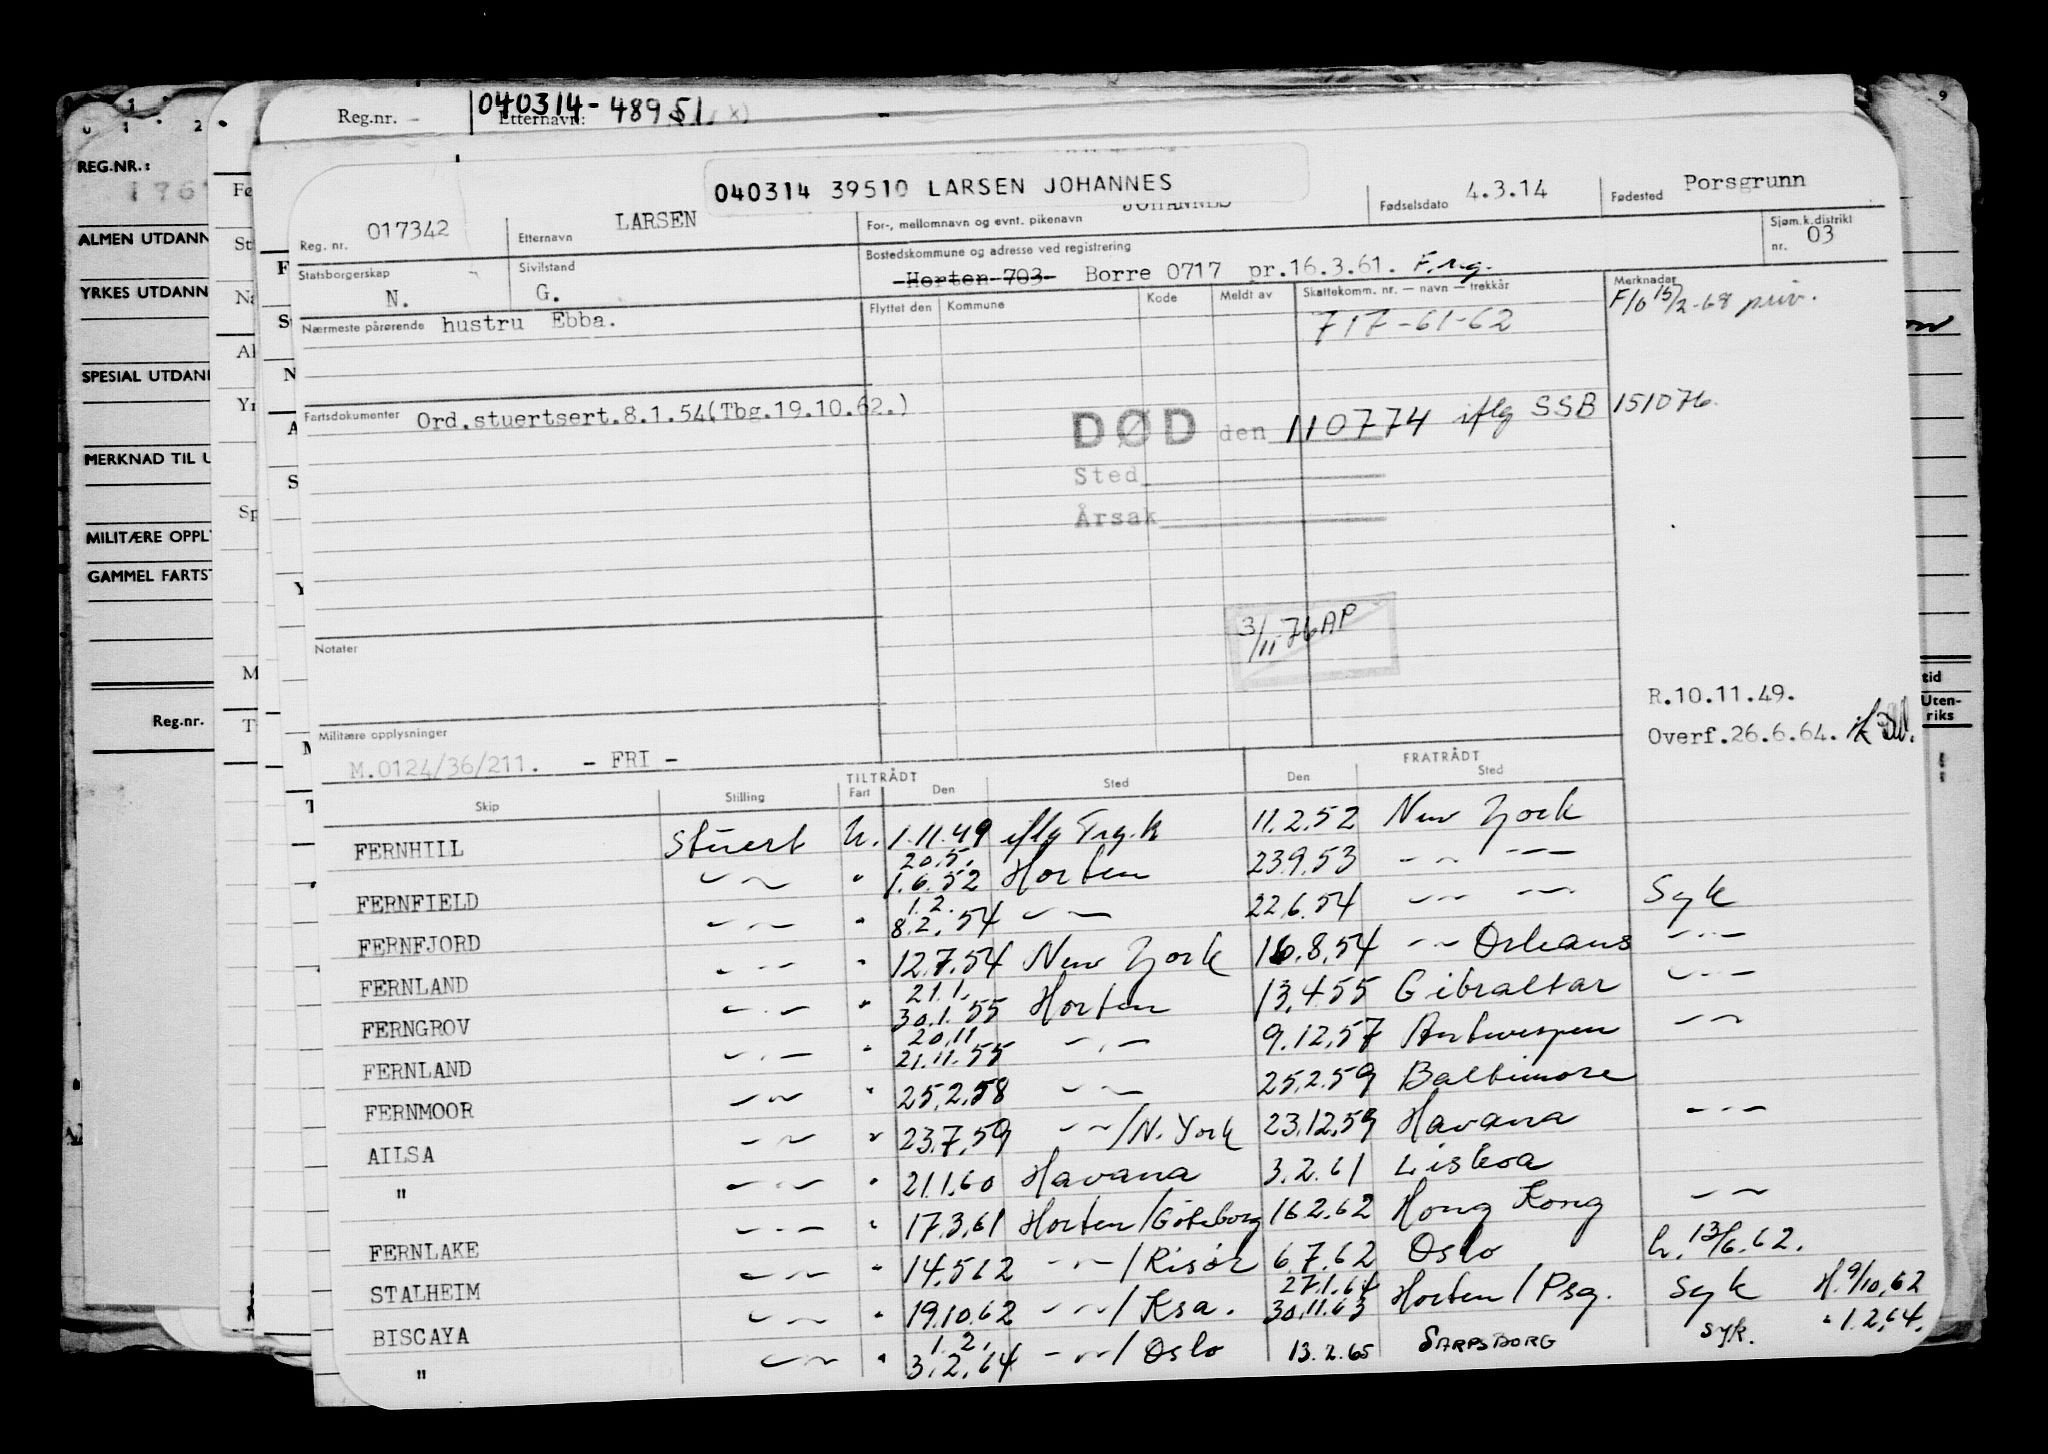 Reg.nr. 040314-48951. (X)
Etternavn:
REG.NR.:
ALMEN UTDANN
YRKES UTDANN
SPESIAL UTDANN
MERKNAD TIL U
MILITÆRE OPPLY
GAMMEL FARTST
Reg.nr.
tid
Uten-
riks
040314 39510 LARSEN JOHANNES
Reg. nr. 017342 Etternavn LARSEN For-, mellomnavn og evnt. pikenavn JOHANNES Fødselsdato 4.3.14 Fødested Porsgrunn
Statsborgerskap N. Sivilstand G. Bostedskommune og adresse ved registrering Horten 703 Borre 0717 pr.16.3.61. F.rg. Sjøm.k.distrikt nr. 03
Nærmeste pårørende hustru Ebba. Flyttet den Kommune Kode Meldt av Skattekomm. nr. — navn — trekkår Merknader
717-61-62 F/o 15/2-68 priv.
Fartsdokumenter Ord.stuertsert.8.1.54(Tbg.19.10.62.)
DØD den 110774 iflg SSB 151076.
Sted
Årsak
3/11-76 AP
Notater
R.10.11.49.
Overf.26.6.64.
Militære opplysninger
M.0124/36/211. - FRI -
TILTRÅDT FRATRÅDT
Skip Stilling Fart Den Sted Den Sted
FERNHILL Stuert U. 1.11.49 iflg Trg.k 11.2.52 New York
FERNFIELD -"- " 20.5. 1.6.52 Horten 23.9.53 -"- -"-
FERNFJORD -"- " 1.2. 8.2.54 -"- 22.6.54 -"- -"- Syk
FERNLAND -"- " 12.7.54 New York 16.8.54 -"- Orleans -"-
FERNGROV -"- " 21.1. 30.1.55 Horten 13.4.55 Gibraltar -"-
FERNLAND -"- " 20.11 21.11.55 -"- 9.12.57 Antwerpen -"-
FERNMOOR -"- " 25.2.58 -"- 25.2.59 Baltimore
AILSA -"- " 23.7.59 -"-/N. York 23.12.59 Havana -"-
" -"- " 21.1.60 Havana 3.2.61 Lisboa
FERNLAKE -"- " 17.3.61 Horten/Göteborg 16.2.62 Hong Kong -"-
STALHEIM -"- " 14.5.62 -"-/Risör 6.7.62 Oslo h. 13/6.62.
BISCAYA -"- " 19.10.62 -"-/Ksa. 27.1.64 30.11.63 Horten/Psg. Syk H.9/10.62
" -"- " 1.2. 3.2.64 -"-/Oslo 13.2.65 SARPSBORG syk. " 1.2.64.